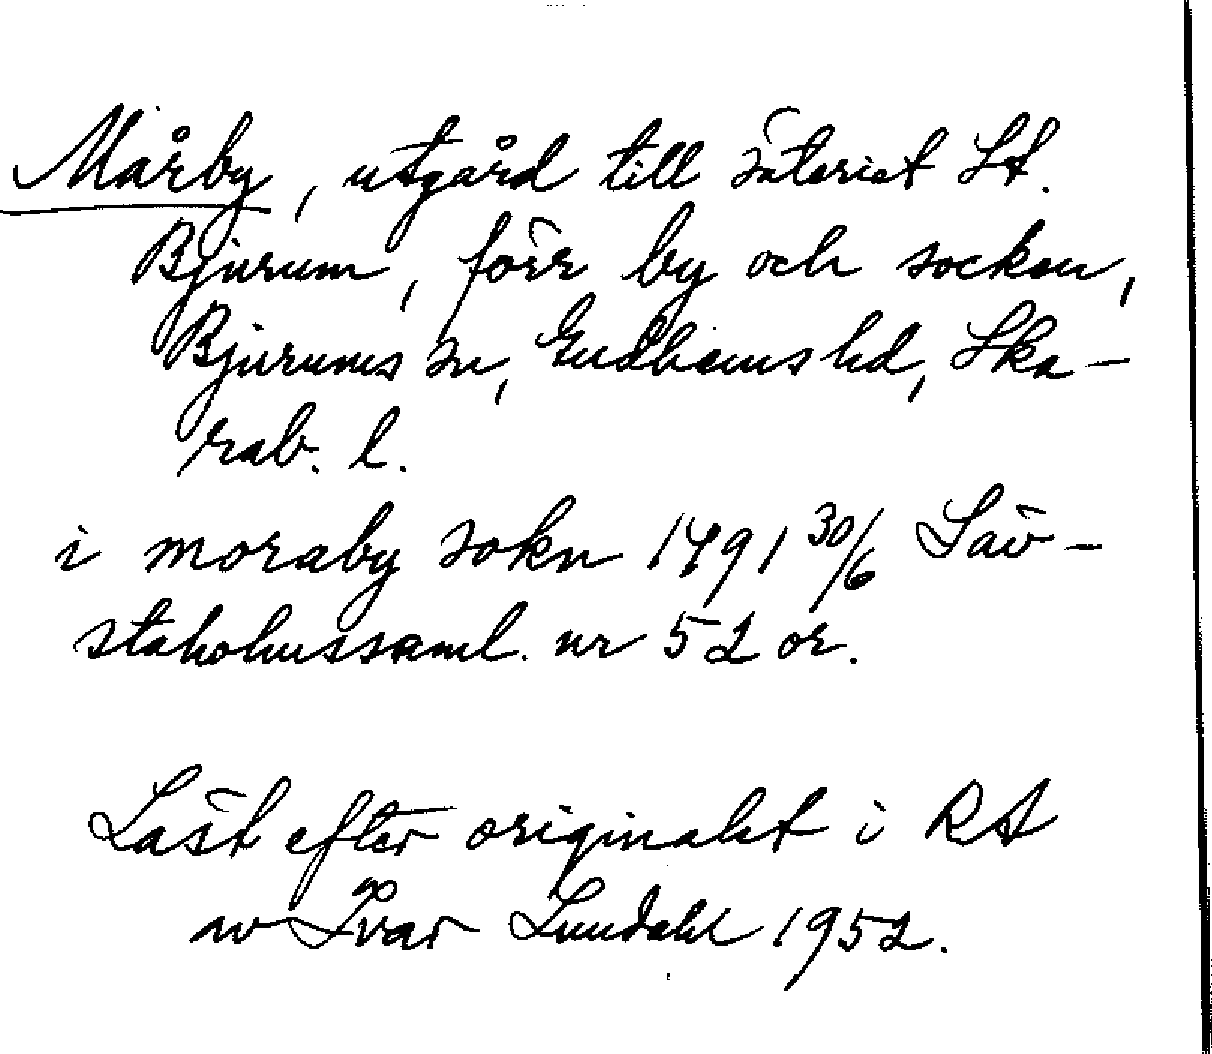 Mårby, utgård till säteriet St.
Bjurum, förr by och socken,
Bjurums sn, Gudhems hd, Ska-
rab. l.
i moraby sokn 1491 30/6 Säv-
staholmssaml. nr 52 or.
Läst efter originalet i RA
av Ivar Lundahl 1952.